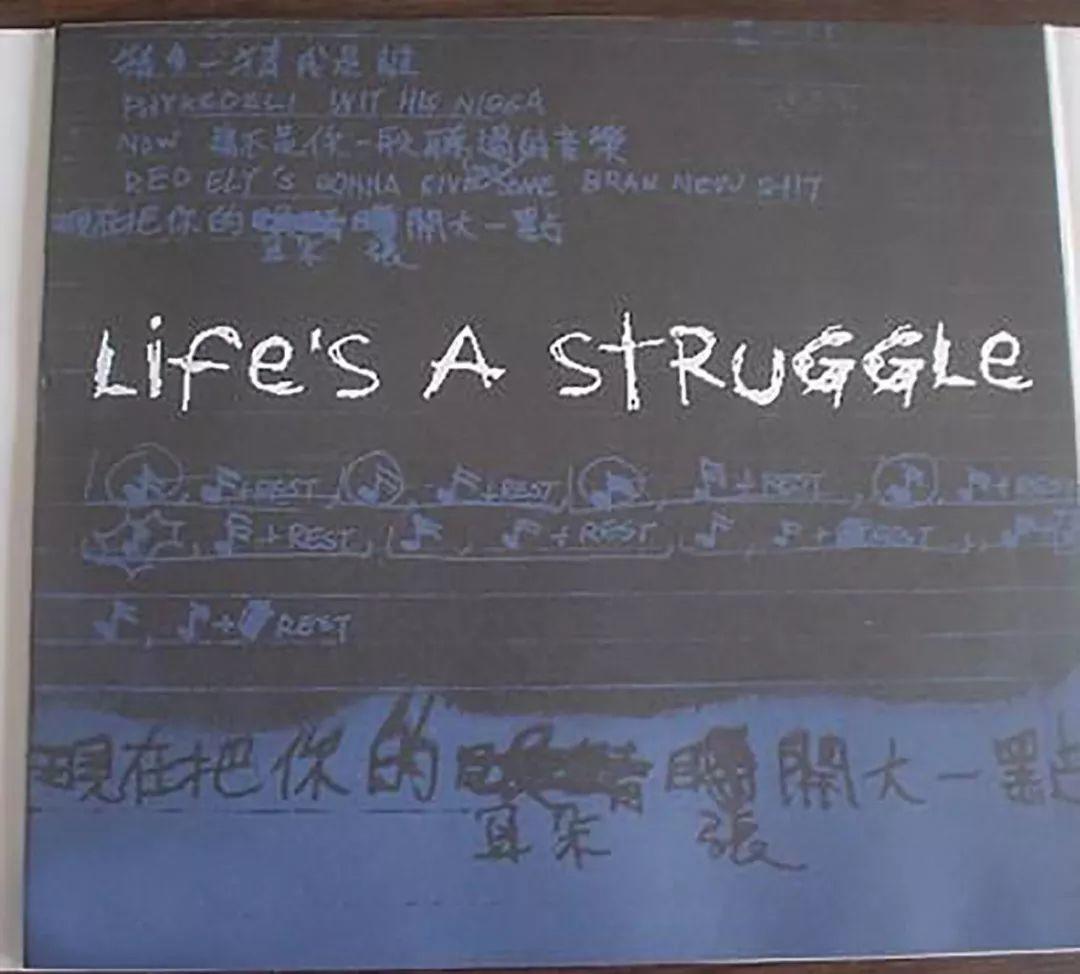 猜身一猜我是誰
PHYKEDELI WIT HIS NIGGA
NOW 還不是你一般聽過的音樂
DED ELY'S GONNA GIVE SOME BRAN NEW SHIT
現在把你的 開大一點
耳朵 張
Life's A StRUGGLe
+REST +REST +REST +REST
+REST +REST + REST
+ REST
現在把你的 開大一點
耳朵 張